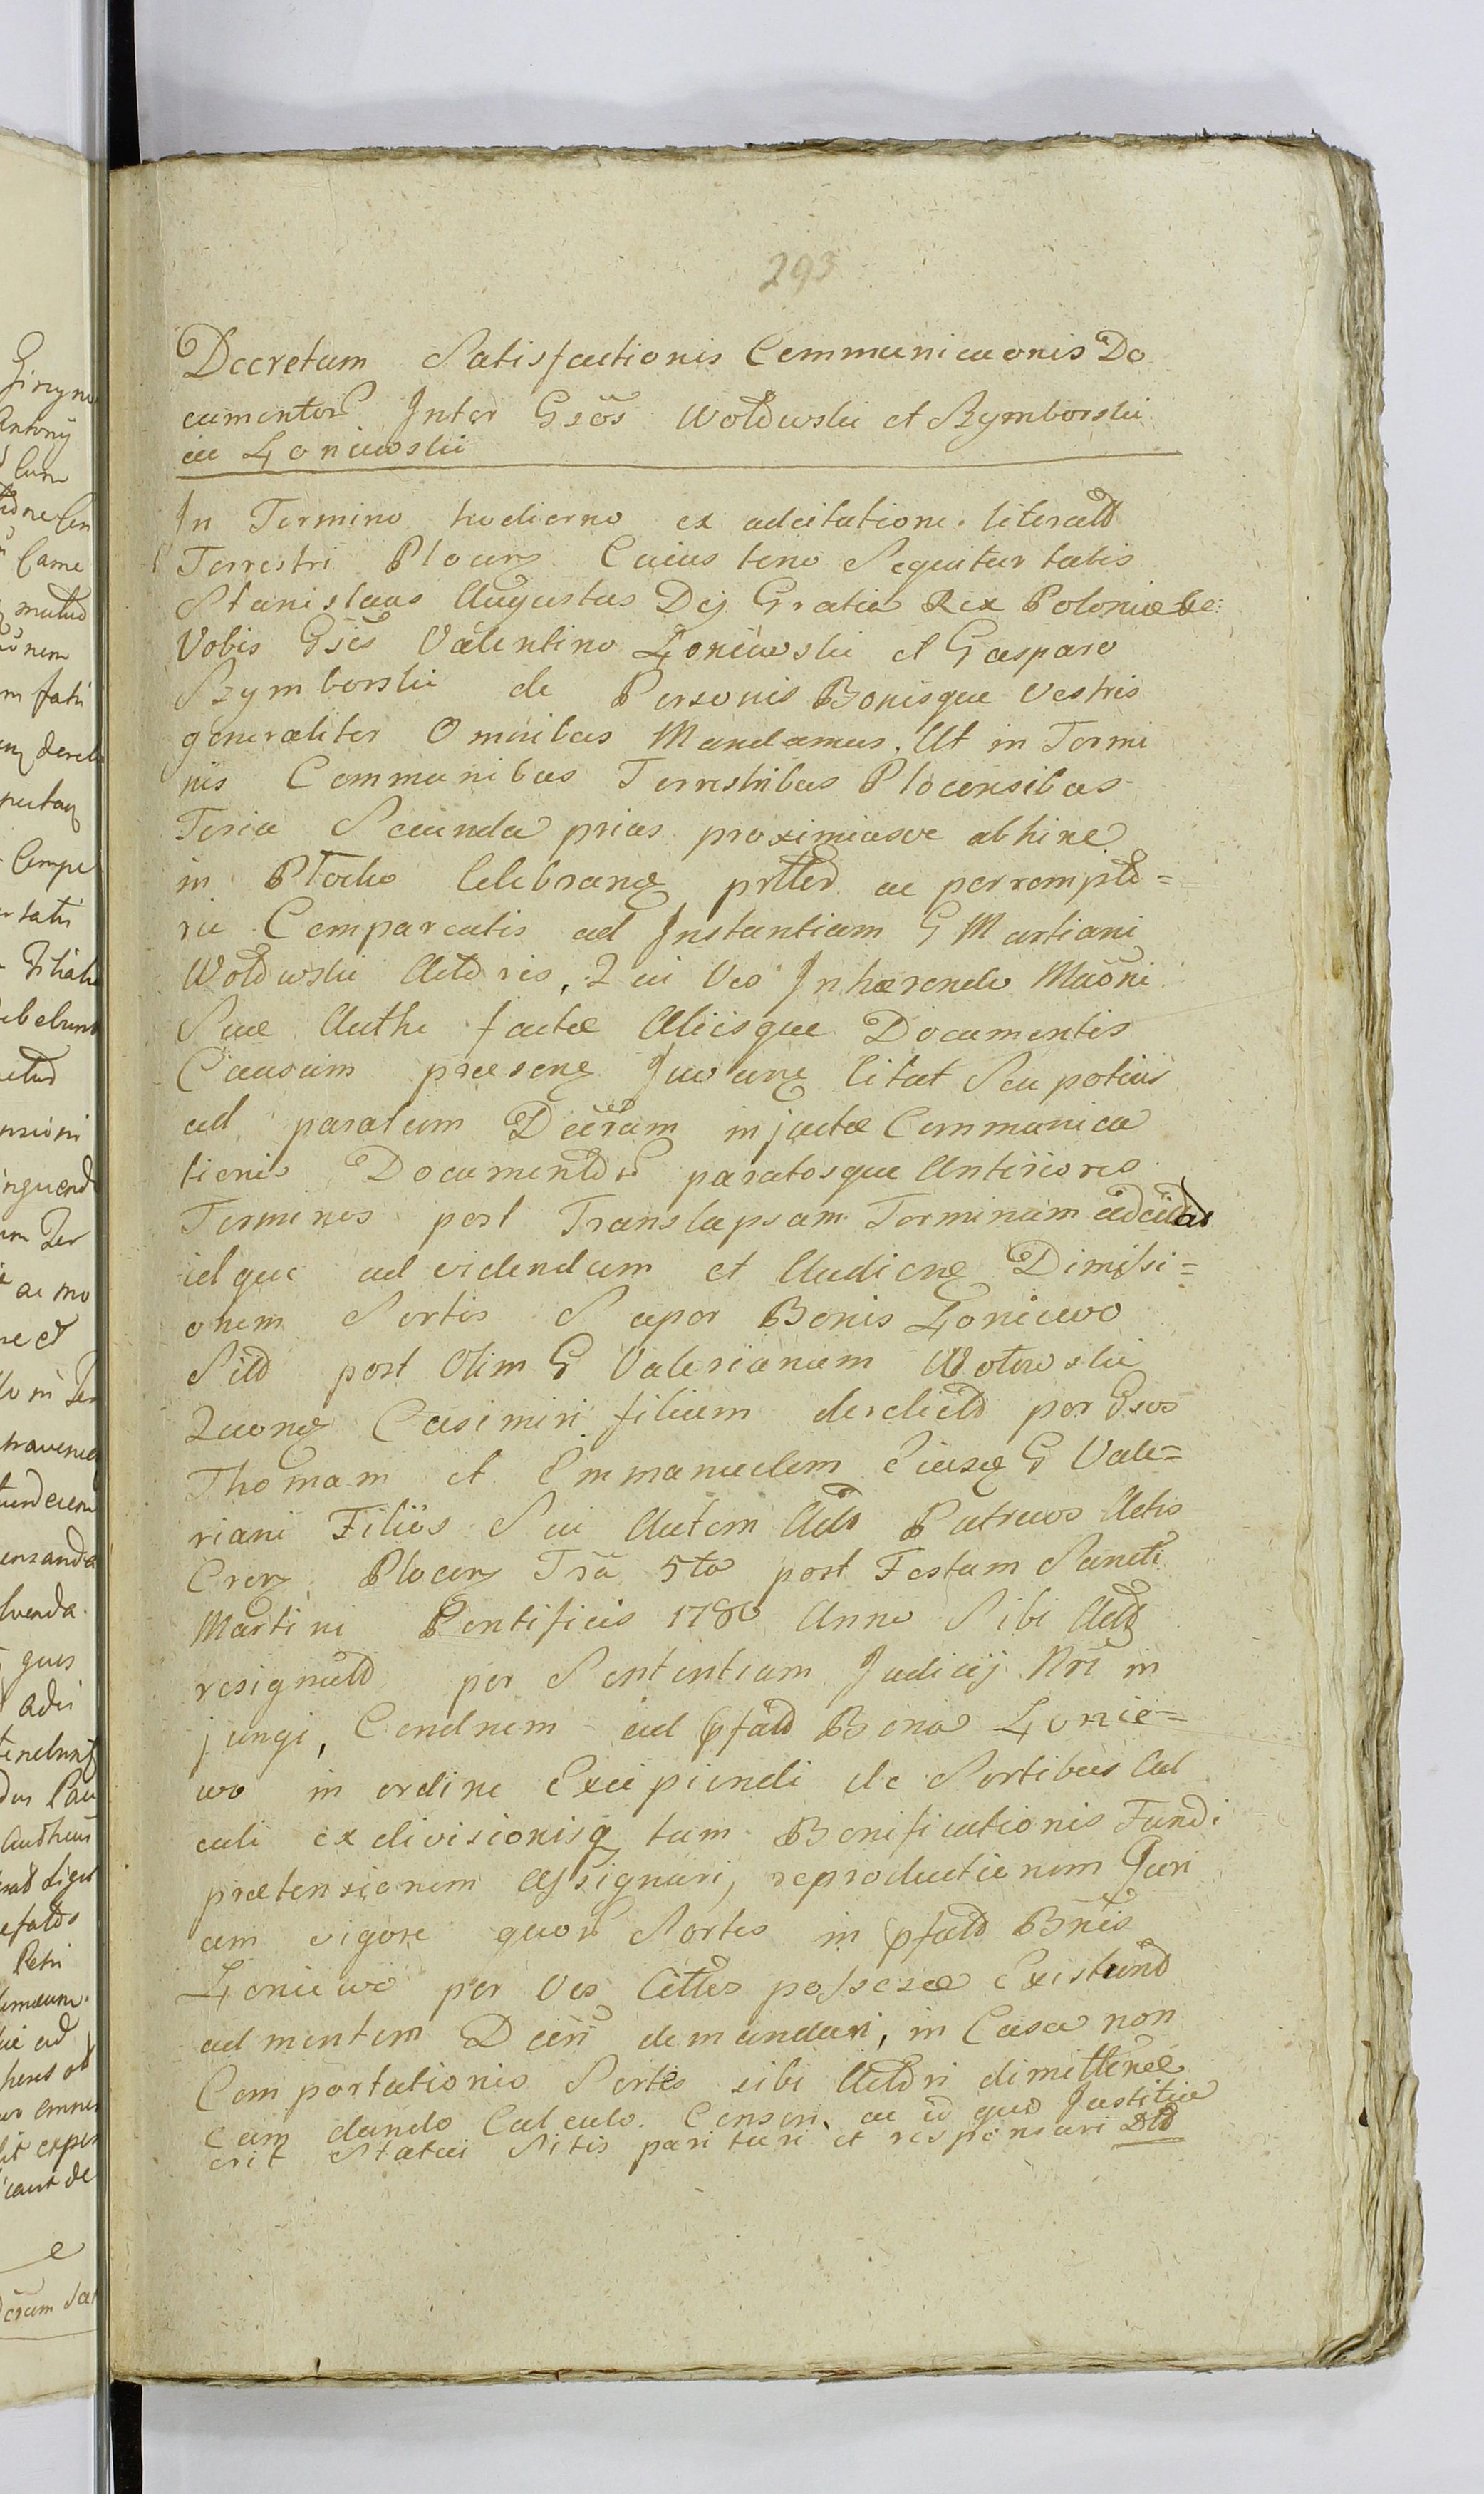 293
Decretum Satisfactionis Communicaonis Do
cumentor Inter Gsōs Wołowski et Szymborski
ac Łoniewski
In Termino hodierno ex adcitatione literali
Terrestri Plocen Cuius teno Sequitur talis
Stanislaus Augustus Dej Gratia Rex Poloniæ &c:
Vobis Gsis Valentino Łoniewski et Gasparo
Szymborski de Personis Bonisque Vestris
generaliter Omnibus Mandamus. Ut in Termi
nis Communibus Terrestribus Plocensibus
Feria Secunda prius proximiusve abhinc
in Płocko Celebran prtter ac perrempto=
rie Compareatis ad Instantiam G Martiani
Wołowski Actoris, Qui Vos Inhærendo Maōni
Suæ Authe factæ Aliisque Documentis
Causam præsen Juvan Citat Seu potius
ad paratum Decrum injunctæ Communica
tionis Documentor paratosque Anteriores
Terminos post Translapsum Terminum adcitat
idque ad videndum et Audien Dimissi=
onem Sortis Super Bonis Łoniewo
Sito post Olim G Valerianum Wołowski
Quon Casimiri filium derelicto per Gsos
Thomam et Emmanuelem Eiusq G Vale=
riani Filios Sui Autem Acto Patruos Actis
Cren Plocen Fsa 5to post Festum Sancti
Martini Pontificis 1780 Anno Sibi Acto
resignato per Sententiam Judicij Nri in
jungi, Condnem ad pfato Bona Łonie=
wo in ordine Excipiendi de Sortibus Cal
culi exdivisionisq tum Bonificationis Fundi
prætensionem Assignari, reproductionem Juri
um vigore quor Sortes in pfato Bnis
Łoniewo per Vos Cittos possesæ Existunt
ad mentem Decri demandari, in Casu non
Comportationis Sortes sibi Actori dimittendæ
cum dando Calculo. Censeri, ac id quod Justitiæ
erit Statui Sitis pari turi et responsuri Dto